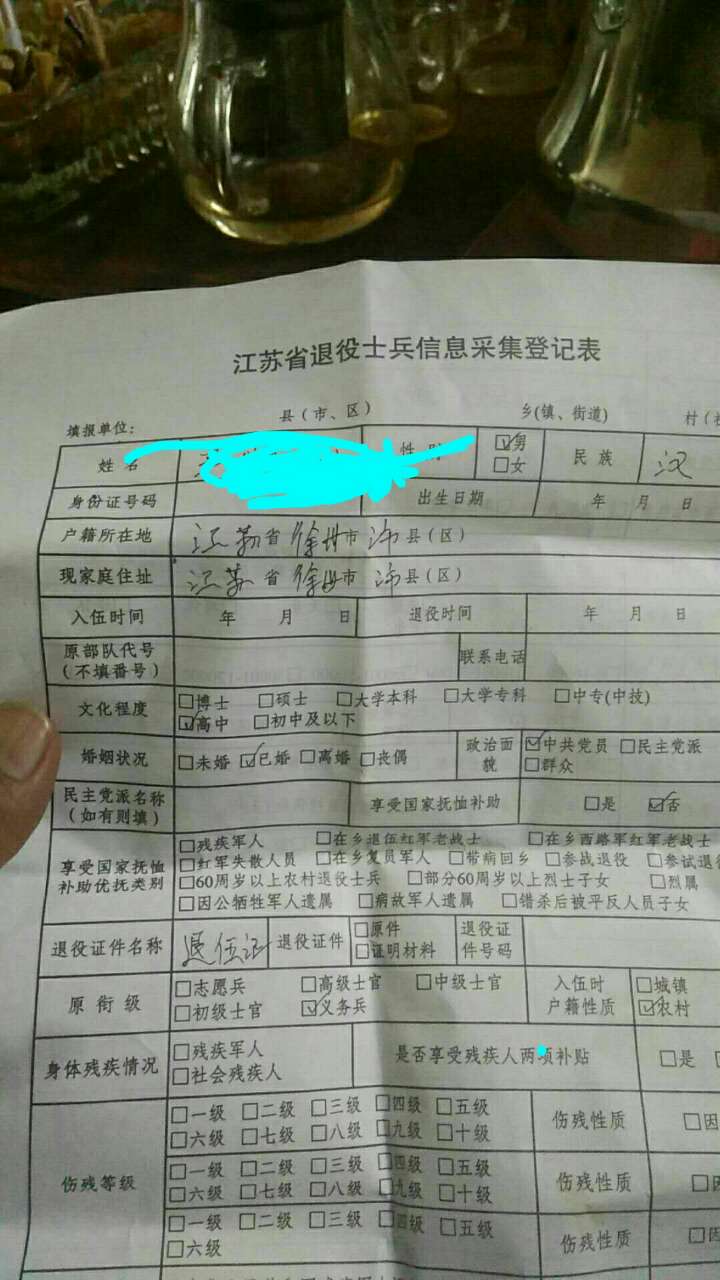 江苏省退役士兵信息采集登记表
填报单位： 县（市、区） 乡(镇、街道) 村（
姓名 性别 ☑男 □女 民族 汉
身份证号码 出生日期 年 月 日
户籍所在地 江苏省徐州市沛县（区）
现家庭住址 江苏省徐州市沛县（区）
入伍时间 年 月 日 退役时间 年 月 日
原部队代号（不填番号） 联系电话
文化程度 □博士 □硕士 □大学本科 □大学专科 □中专(中技)
☑高中 □初中及以下
婚姻状况 □未婚 ☑已婚 □离婚 □丧偶 政治面貌 ☑中共党员 □民主党派
□群众
民主党派名称（如有则填） 享受国家抚恤补助 □是 ☑否
享受国家抚恤补助优抚类别 □残疾军人 □在乡退伍红军老战士 □在乡西路军红军老战士
□红军失散人员 □在乡复员军人 □带病回乡 □参战退役 □参试退役
□60周岁以上农村退役士兵 □部分60周岁以上烈士子女 □烈属
□因公牺牲军人遗属 □病故军人遗属 □错杀后被平反人员子女
退役证件名称 退伍证 退役证件 □原件 □证明材料 退役证件号码
原衔级 □志愿兵 □高级士官 □中级士官 入伍时户籍性质 □城镇
□初级士官 ☑义务兵 ☑农村
身体残疾情况 □残疾军人 □社会残疾人 是否享受残疾人两项补贴 □是
伤残等级 □一级 □二级 □三级 □四级 □五级 伤残性质 □因
□六级 □七级 □八级 □九级 □十级
□一级 □二级 □三级 □四级 □五级 伤残性质 □因
□六级 □七级 □八级 □九级 □十级
□一级 □二级 □三级 □四级 □五级 伤残性质 □因
□六级